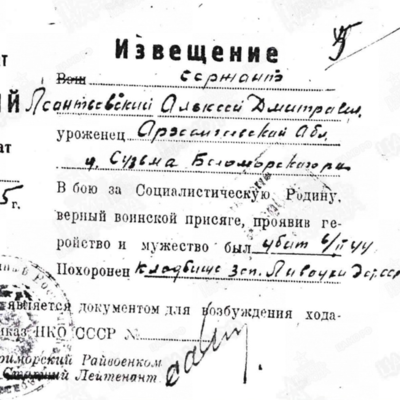 Извещение
Ваш сержант
Леонтьевский Алексей Дмитриев.
уроженец Архангельской Обл.
д. Сузьма Беломорского р-на
5 г.
В бою за Социалистическую Родину,
верный воинской присяге, проявив ге-
ройство и мужество был убит 6/II 44
Похоронен кладбище зап. Эст.ССР
является документом для возбуждения хода-
каз НКО СССР №
риморский Райвоенком
Старший Лейтенант